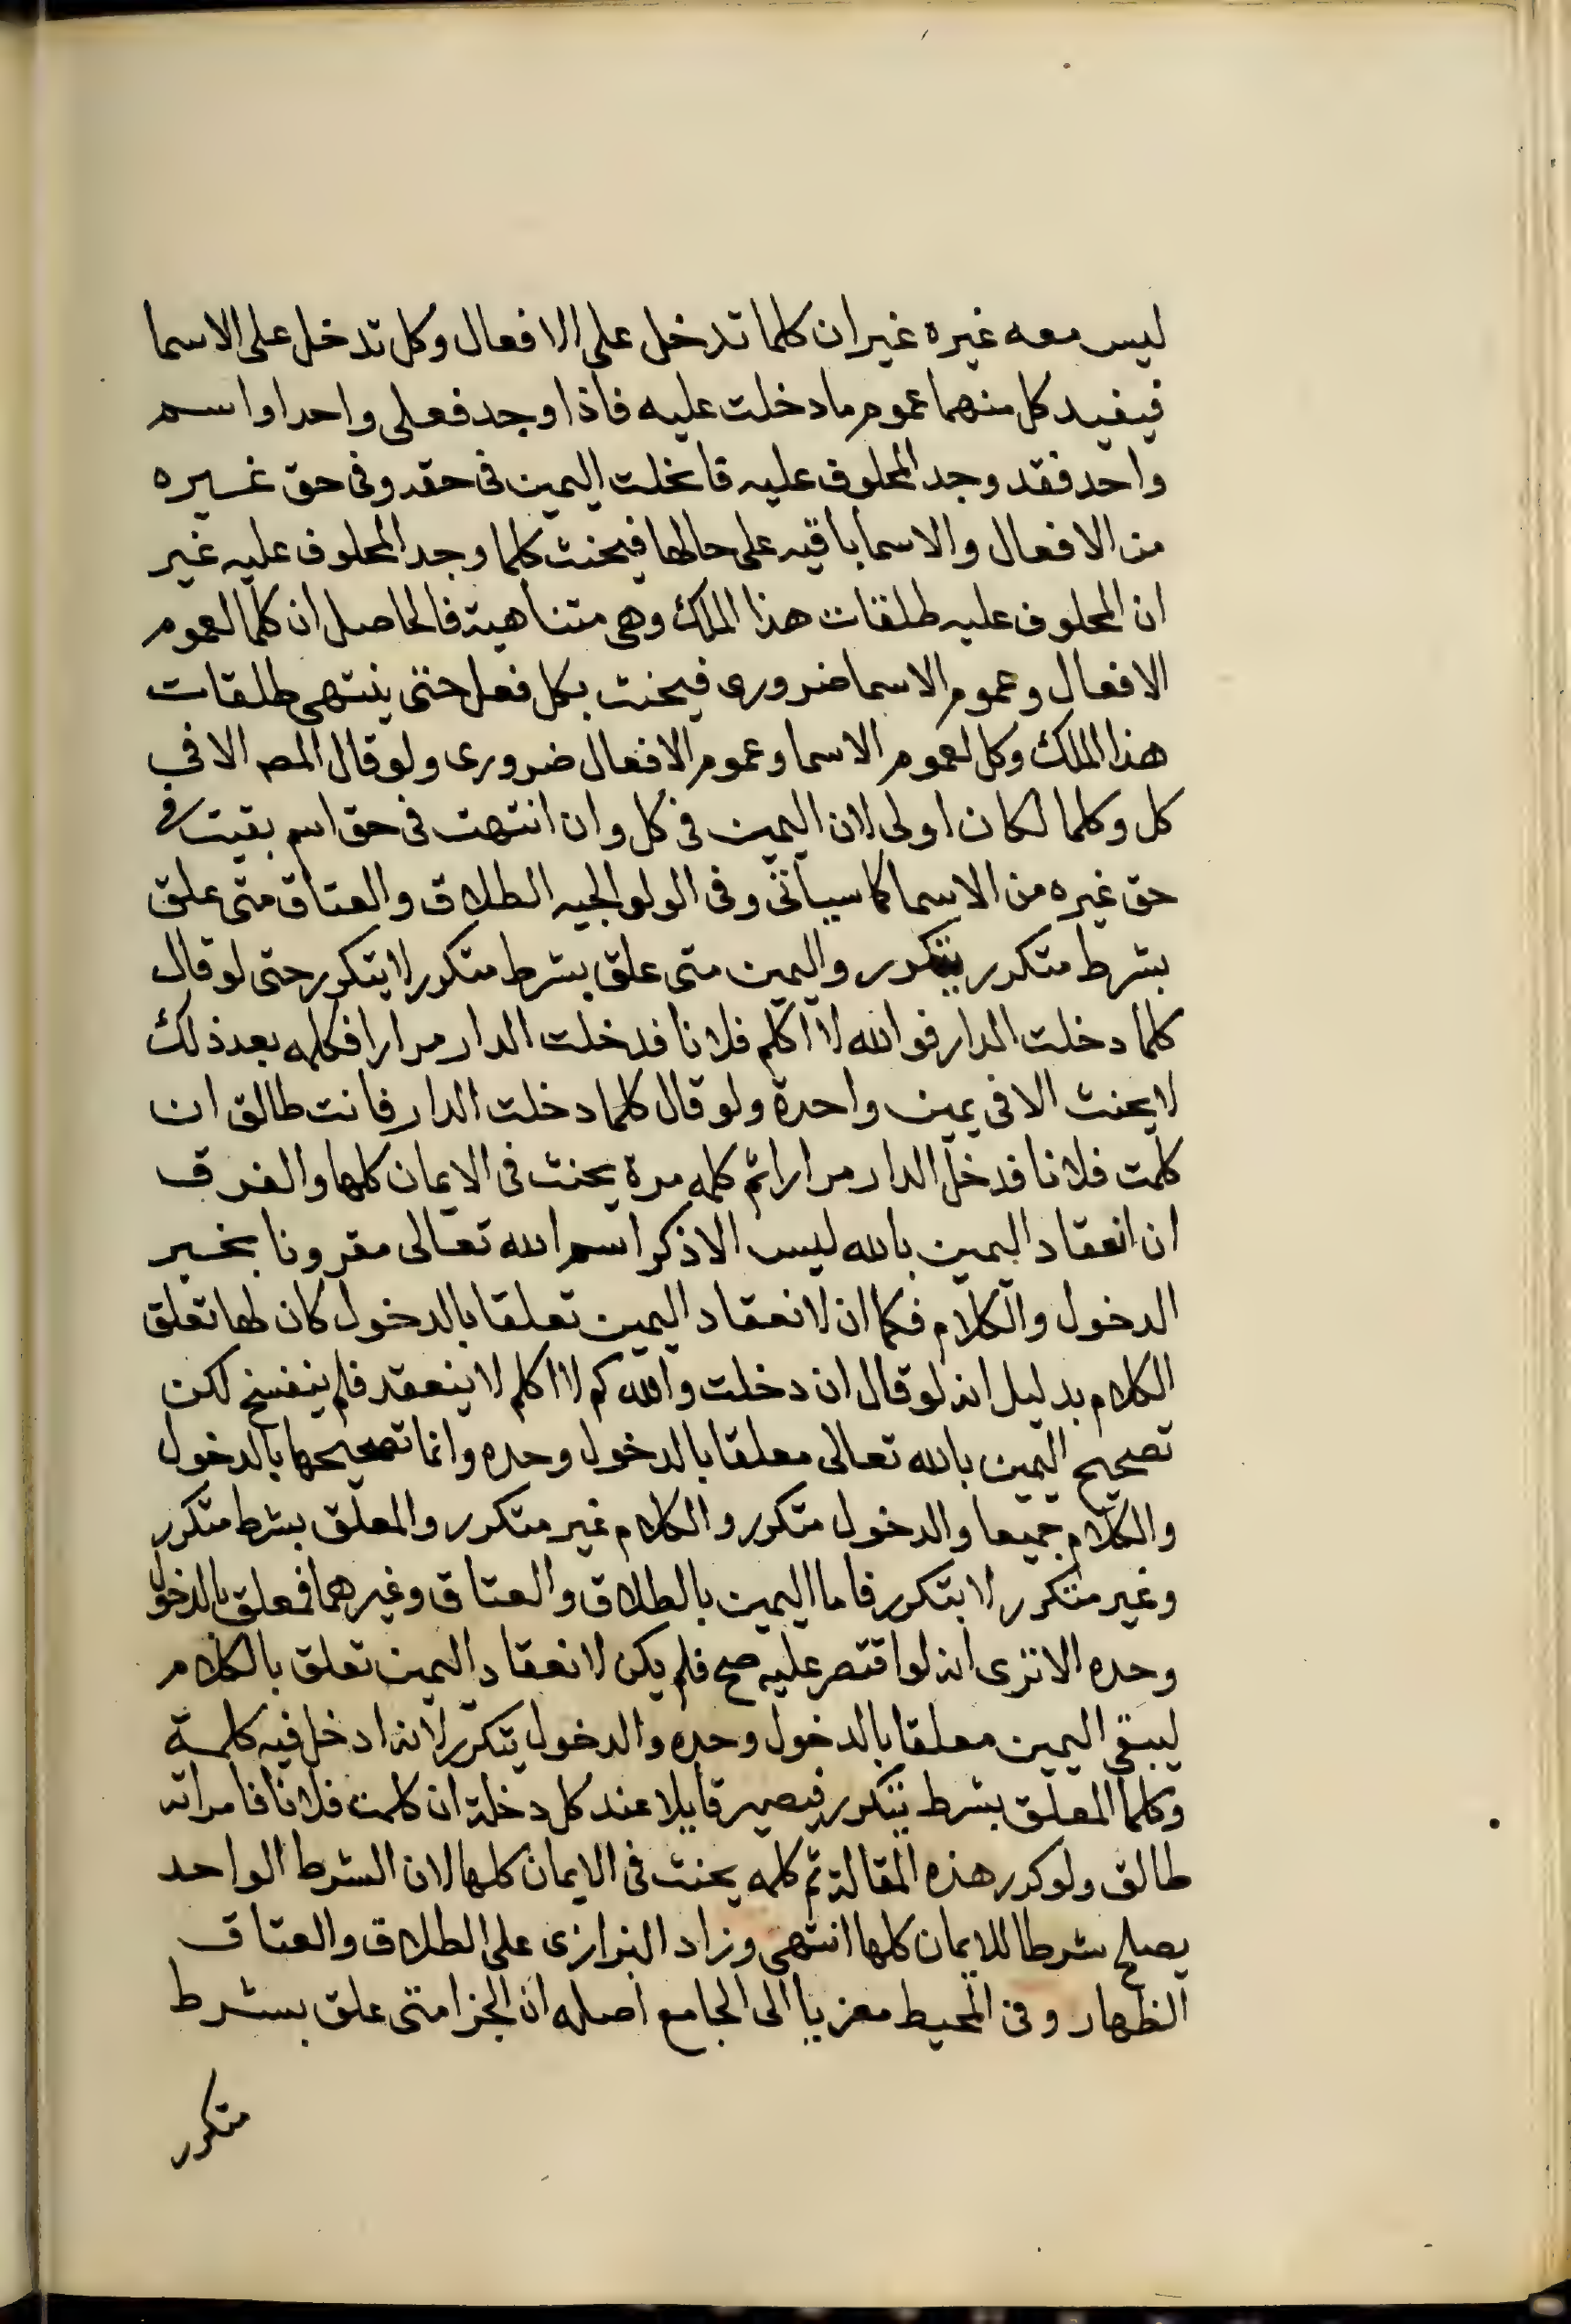 ليس معه غيره غير ان كلما تدخل على الافعال وكل تدخل على الاسما
فيفيد كل منهما عموم ما دخلت عليه فاذا وجد فعلى واحد او اسم
واحد فقد وجد المحلوف عليه فانحلت اليمين فى حقه وفى حق غيره
من الافعال والاسما باقيه على حالها فيحنث كلما وجد المحلوف عليه غير
ان المحلوف عليه طلقات هذا الملك وهى متناهية فالحاصل ان كلما لعموم
الافعال وعموم الاسما ضرورى فيحنث بكل فعل حتى ينتهى طلقات
هذا الملك وكل لعموم الاسما وعموم الافعال ضرورى ولو قال المص الا فى
كل وكلما لكان اولى لان اليمين فى كل وان انتهت فى حق اسم بقيت فى
حق غيره من الاسما كما سياتى وفى الولوالجيه الطلاق والعتاق متى علق
بشرط متكرر يتكرر واليمين متى علق بشرط متكرر لا يتكرر حتى لو قال
كلما دخلت الدار فوالله لا اكلم فلانا فدخلت الدار مرارا فكلمه بعد ذلك
لا يحنث الا فى يمين واحدة ولو قال كلما دخلت الدار فانت طالق ان
كلمت فلانا فدخل الدار مرارا ثم كلمه مرة يحنث فى الايمان كلها والفرق
ان انعقاد اليمين بالله ليس الا ذكر اسم الله تعالى مقرونا بخبر
الدخول والكلام فكما ان لانعقاد اليمين تعلقا بالدخول كان لها تعلق
الكلام بدليل انه لو قال ان دخلت والله لم لا اكلم لا ينعقد فلم ينفسخ لكن
تصحيح اليمين بالله تعالى معلقا بالدخول وحده وانما تصحيحها بالدخول
والكلام جميعا والدخول متكرر والكلام غير متكرر والمعلق بشرط متكرر
وغير متكرر لا يتكرر فاما اليمين بالطلاق والعتاق وغيرهما فمعلق بالدخول
وحده الا ترى انه لو اقتصر عليه صح فلم يكن لانعقاد اليمين تعلق بالكلام
ليبقى اليمين معلقا بالدخول وحده والدخول يتكرر لانه ادخل فيه كلمة
وكلما المعلق بشرط يتكرر فيصير قايلا عند كل دخلة ان كلمت فلانا فامراته
طالق ولو كرر هذه المقالة ثم كلمه يحنث فى الايمان كلها لان الشرط الواحد
يصلح شرطا للايمان كلها انتهى وزاد البزازى على الطلاق والعتاق
الظهار وفى المحيط معزيا الى الجامع اصله ان الجزا متى علق بشرط
متكرر